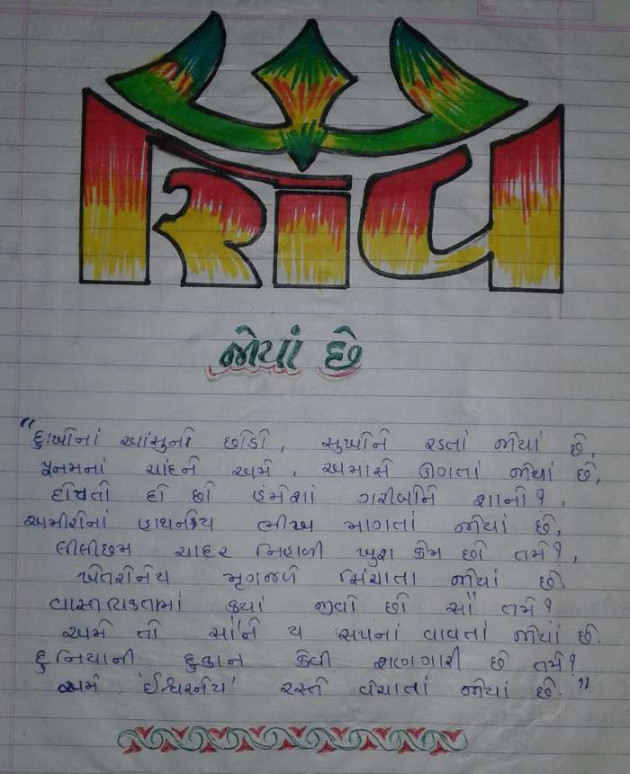 શિવ
જોયાં છે
"દુઃખોનાં આંસુની છોડો, સુખોને રડતાં જોયાં છે,
પૂનમનાં ચાંદને અમે, અમાસે ઊગતાં જોયાં છે,
દોષતો દો છો હંમેશાં ગરીબોને શાનો?,
અમીરોનાં હાથનેય ભીખ માગતાં જોયાં છે,
લીલીછમ ચાદર નિહાળી ખુશ કેમ છો તમે?,
ખેતરોનેય મૃગજળે સિંચાતા જોયાં છે.
વાસ્તવિકતામાં ક્યાં જીવો છો સૌ તમે?
અમે તો સૌને ય સપનાં વાવતાં જોયાં છે.
દુનિયાની દુકાન કેવી શણગારી છે તમે?
અમે 'ઈશ્વરનેય' રસ્તે વેચાતાં જોયાં છે."